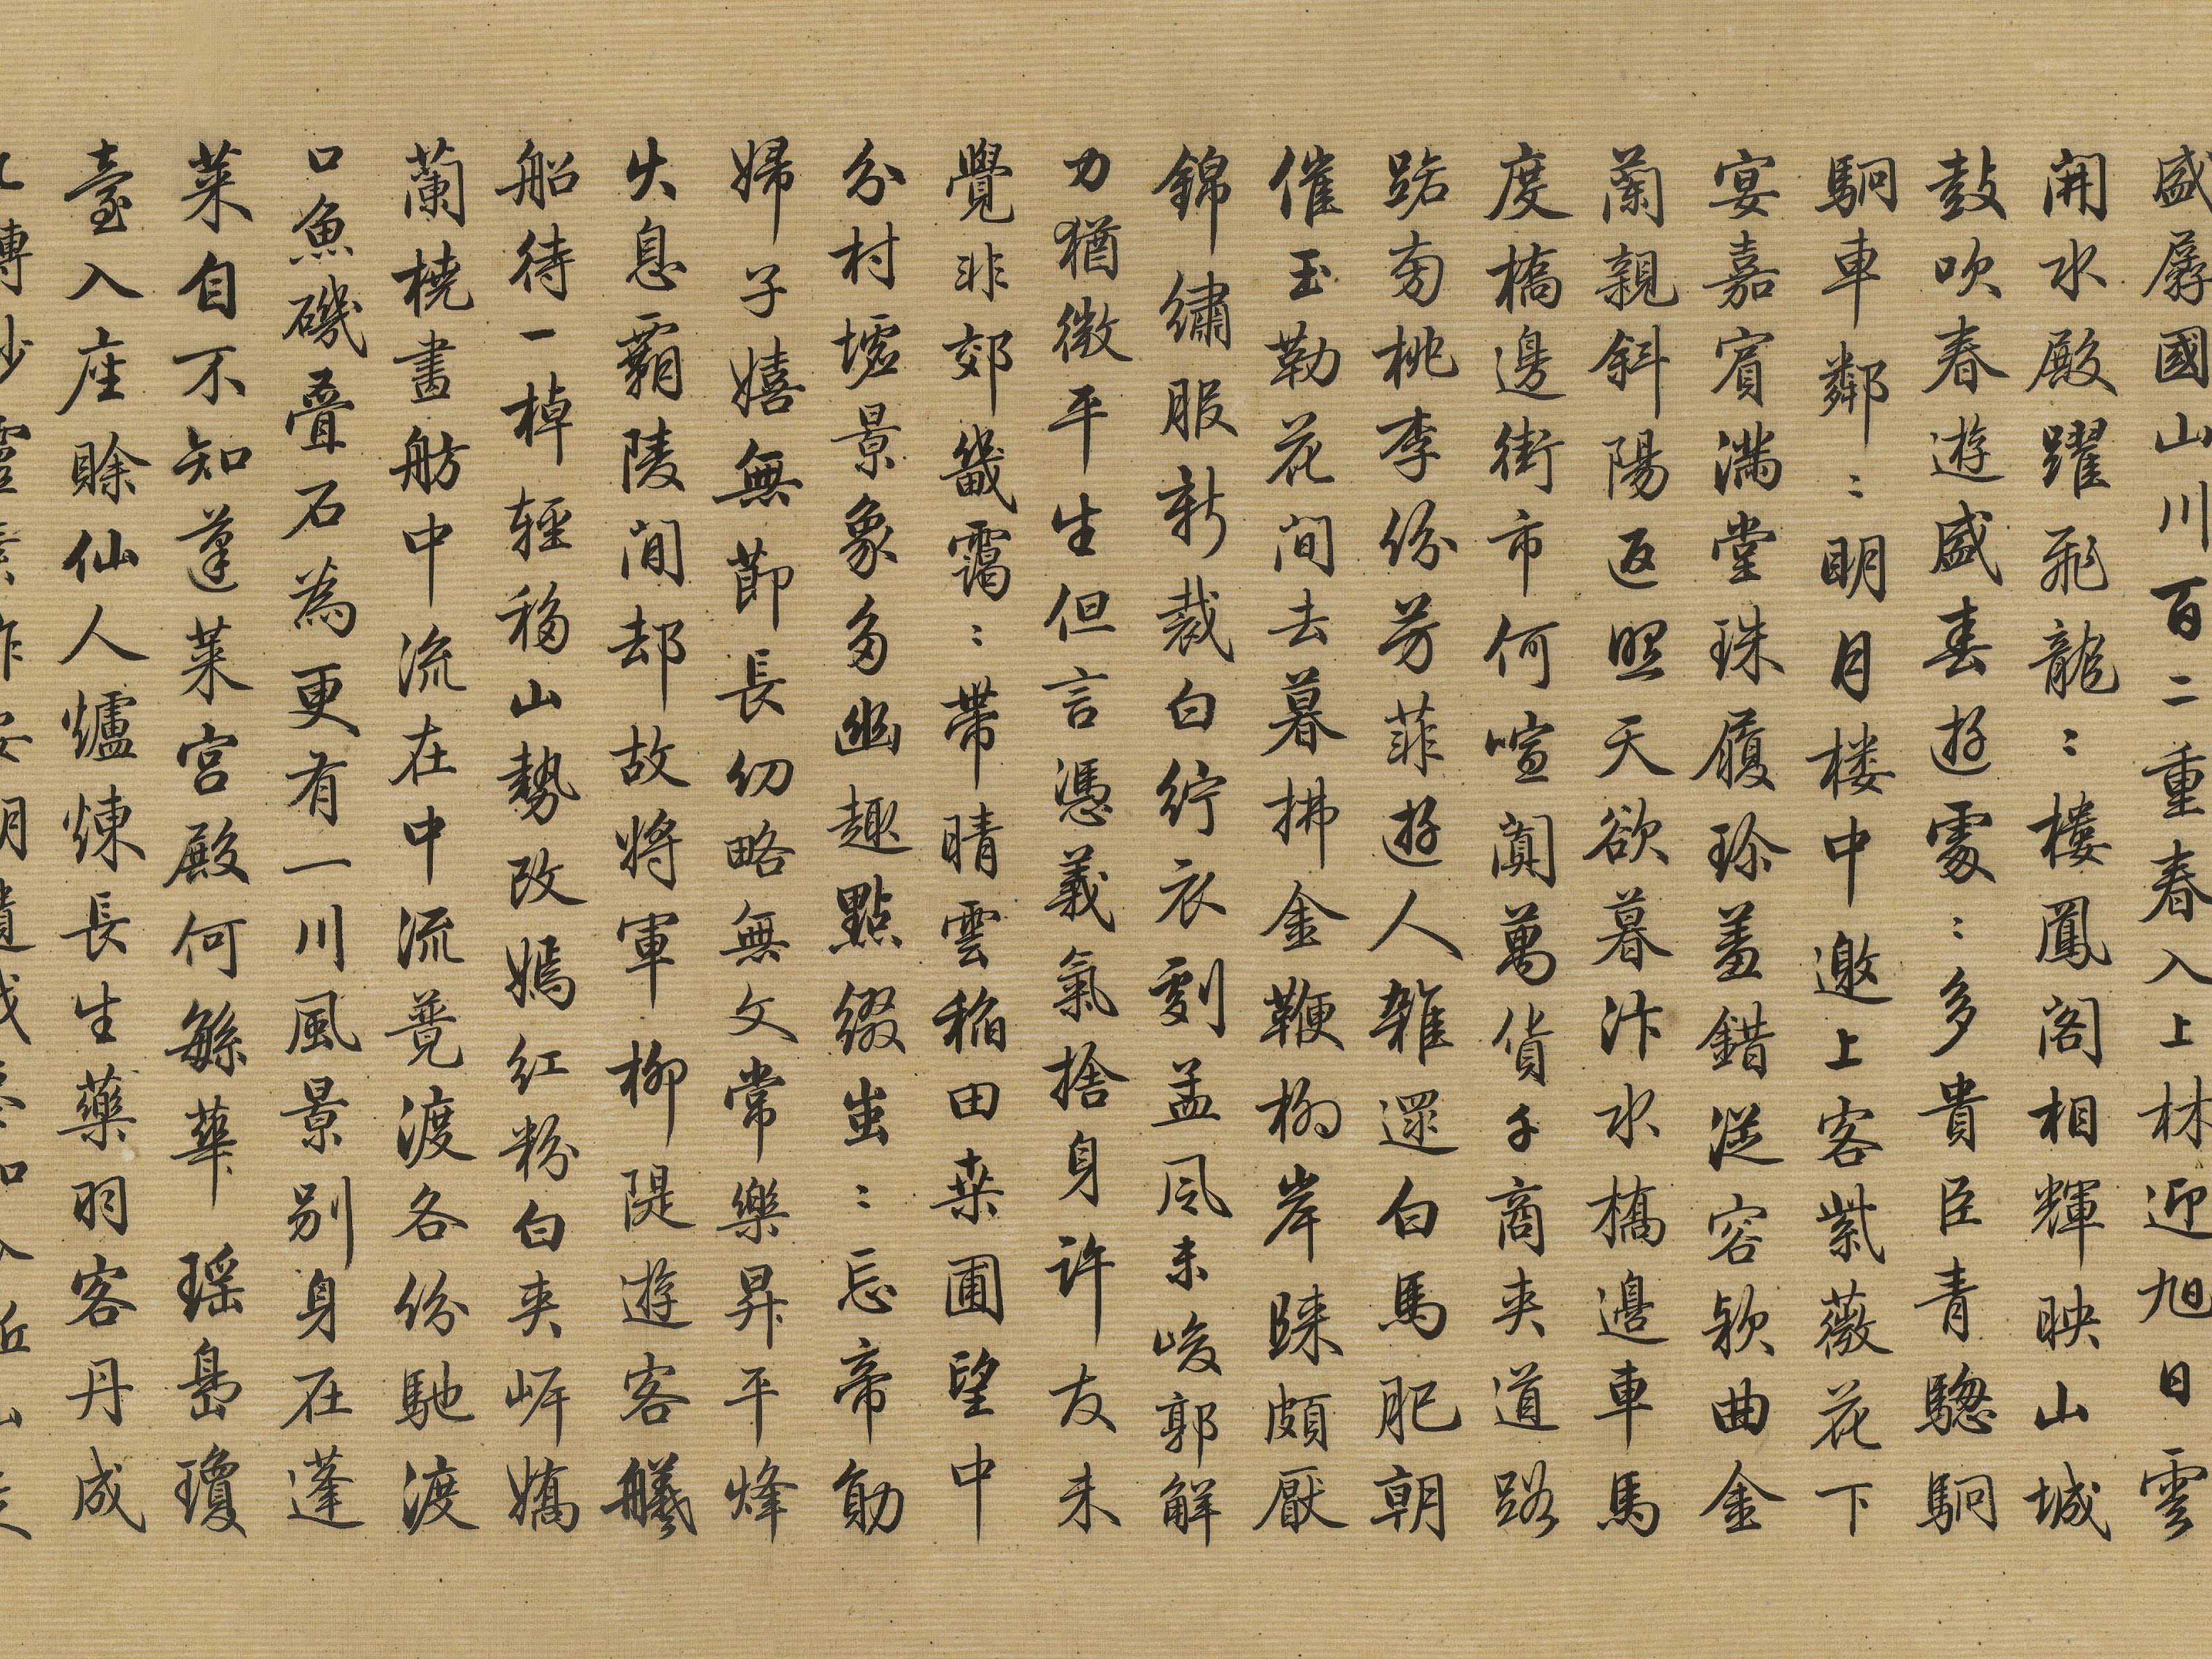 盛孱國山川百二重春入上林迎旭日雲
開水殿躍飛龍〻樓鳳閣相輝映山城
鼓吹春遊盛春遊處〻多貴臣青驄駉
駉車鄰〻明月楼中邀上客紫薇花下
宴嘉賓滿堂珠履珍羞錯從容欵曲金
蘭親斜陽返照天欲暮汴水橋邊車馬
度橋邊街市何喧闐萬貨千商夾道路
路旁桃李份芳菲遊人雜遝白馬肥朝
催玉勒花間去暮拂金鞭柳岸歸頗厭
錦繡服新裁白紵衣劇孟風未峻郭解
力猶微平生但言憑義氣捨身許友未
覺非郊畿靄〻帶晴雲稲田桒圃望中
分村墟景象多幽趣點綴蚩〻忘帝勛
婦子嬉無節長幼略無文常樂昇平烽
火息霸陵閒却故將軍柳隄遊客艤
船待一棹輕移山勢改嫣紅粉白夾岸嬌
蘭橈畫舫中流在中流競渡各份馳渡
口魚磯疊石為更有一川風景別身在蓬
萊自不知蓬萊宮殿何緐華瑤島瓊
臺入座賒仙人爐煉長生藥羽客丹成